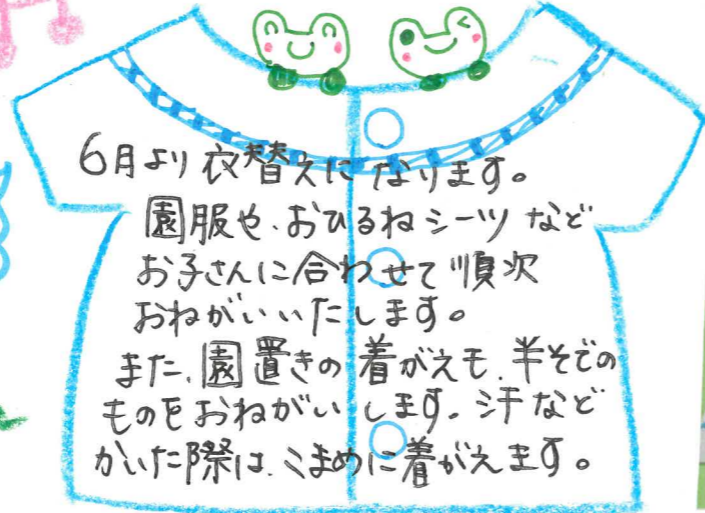 6月より衣替えになります。
園服や、おひるねシーツなど
お子さんに合わせて順次
おねがいいたします。
また、園置きの着がえも、半そでの
ものをおねがいします。汗など
かいた際は、こまめに着がえます。